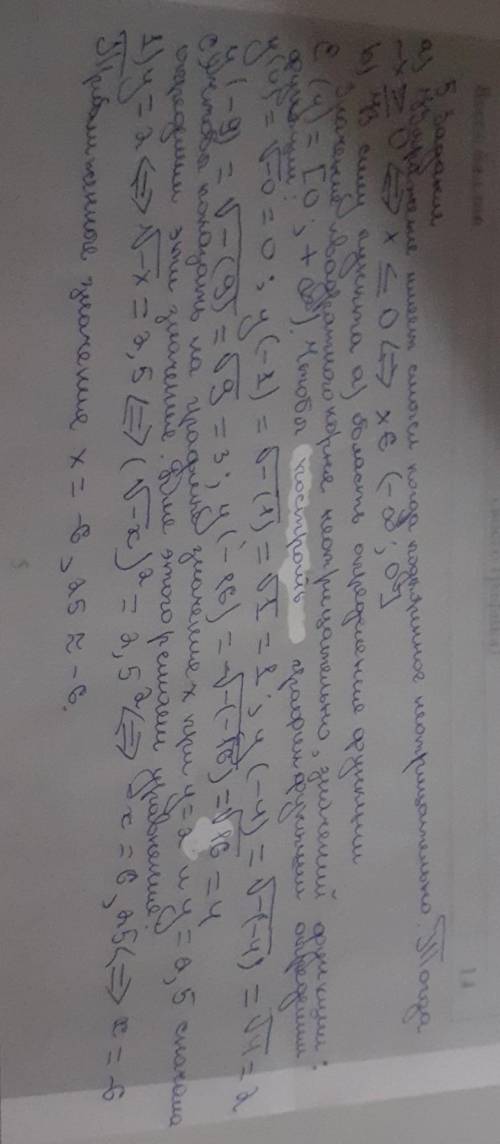 5 задание
а) выражение имеет смысл когда подкоренное неотрицательно. Тогда
-x ≥ 0 <=> x ≤ 0 <=> x ∈ (-∞; 0]
b) из силы пункта а) область определение функции
Значение квадратного корня неотрицательно, значений функции:
E(y) = [0; +∞). Чтобы построить график функции определим
функции:
y(0) = √-0 = 0; y(-1) = √-(1) = √1 = 1; y(-4) = √-(-4) = √4 = 2
y(-9) = √-(9) = √9 = 3; y(-16) = √-(-16) = √16 = 4
с) чтобы показать на графике значение x при y = 2 и y = 2,5 сначала
определим эти значение. Для этого решаем уравнение:
1) y = 2 <=> √-x = 2,5 <=> (√-x)² = 2,5² <=> -x = 6,25 <=> x = -6
Приближенное значение x = -6,25 ≈ -6.